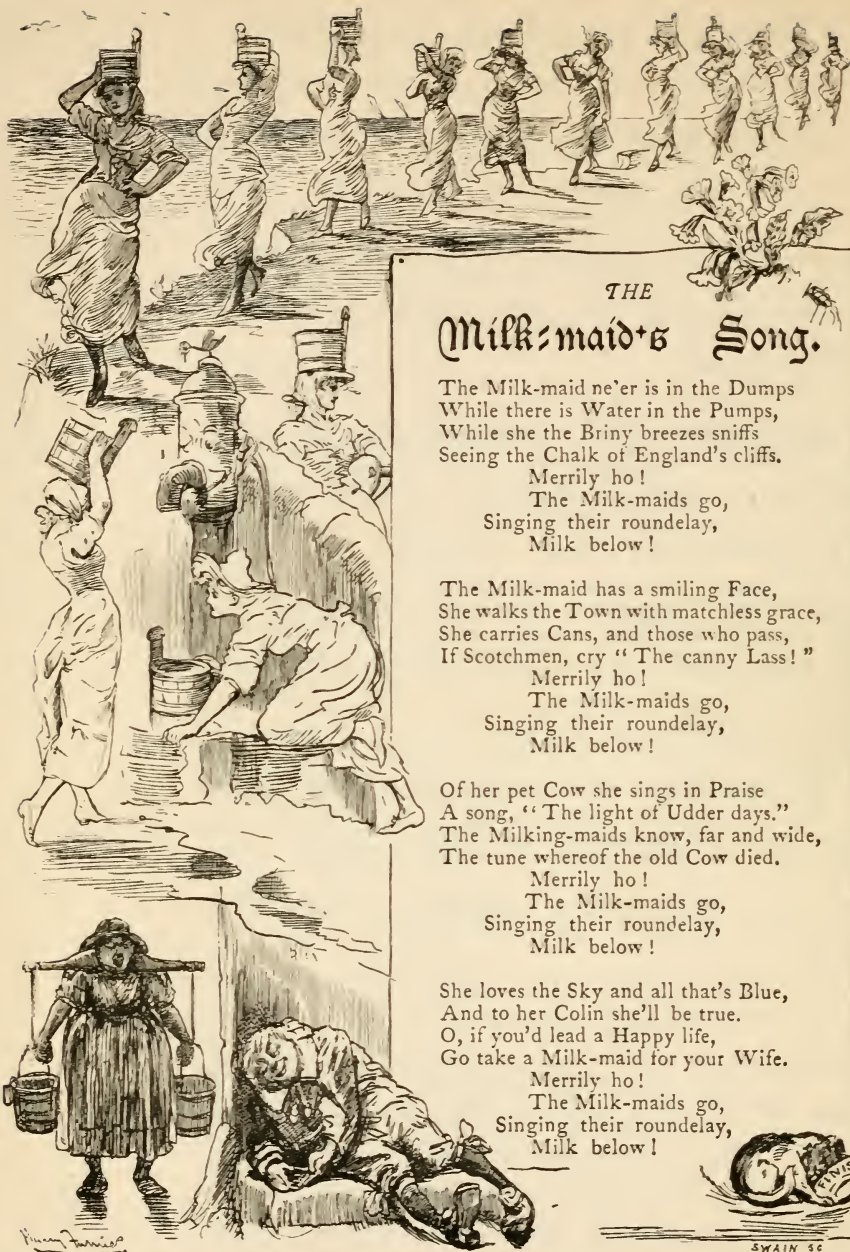 THE
Milk-maid's Song.
The Milk-maid ne'er is in the Dumps
While there is Water in the Pumps,
While she the Briny breezes sniffs
Seeing the Chalk of England's cliffs.
Merrily ho!
The Milk-maids go,
Singing their roundelay,
Milk below!
The Milk-maid has a smiling Face,
She walks the Town with matchless grace,
She carries Cans, and those who pass,
If Scotchmen, cry "The canny Lass!"
Merrily ho!
The Milk-maids go,
Singing their roundelay,
Milk below!
Of her pet Cow she sings in Praise
A song, "The light of Udder days."
The Milking-maids know, far and wide,
The tune whereof the old Cow died.
Merrily ho!
The Milk-maids go,
Singing their roundelay,
Milk below!
She loves the Sky and all that's Blue,
And to her Colin she'll be true.
O, if you'd lead a Happy life,
Go take a Milk-maid for your Wife.
Merrily ho!
The Milk-maids go,
Singing their roundelay,
Milk below!
FINIS
Harry Furniss
SWAIN SC